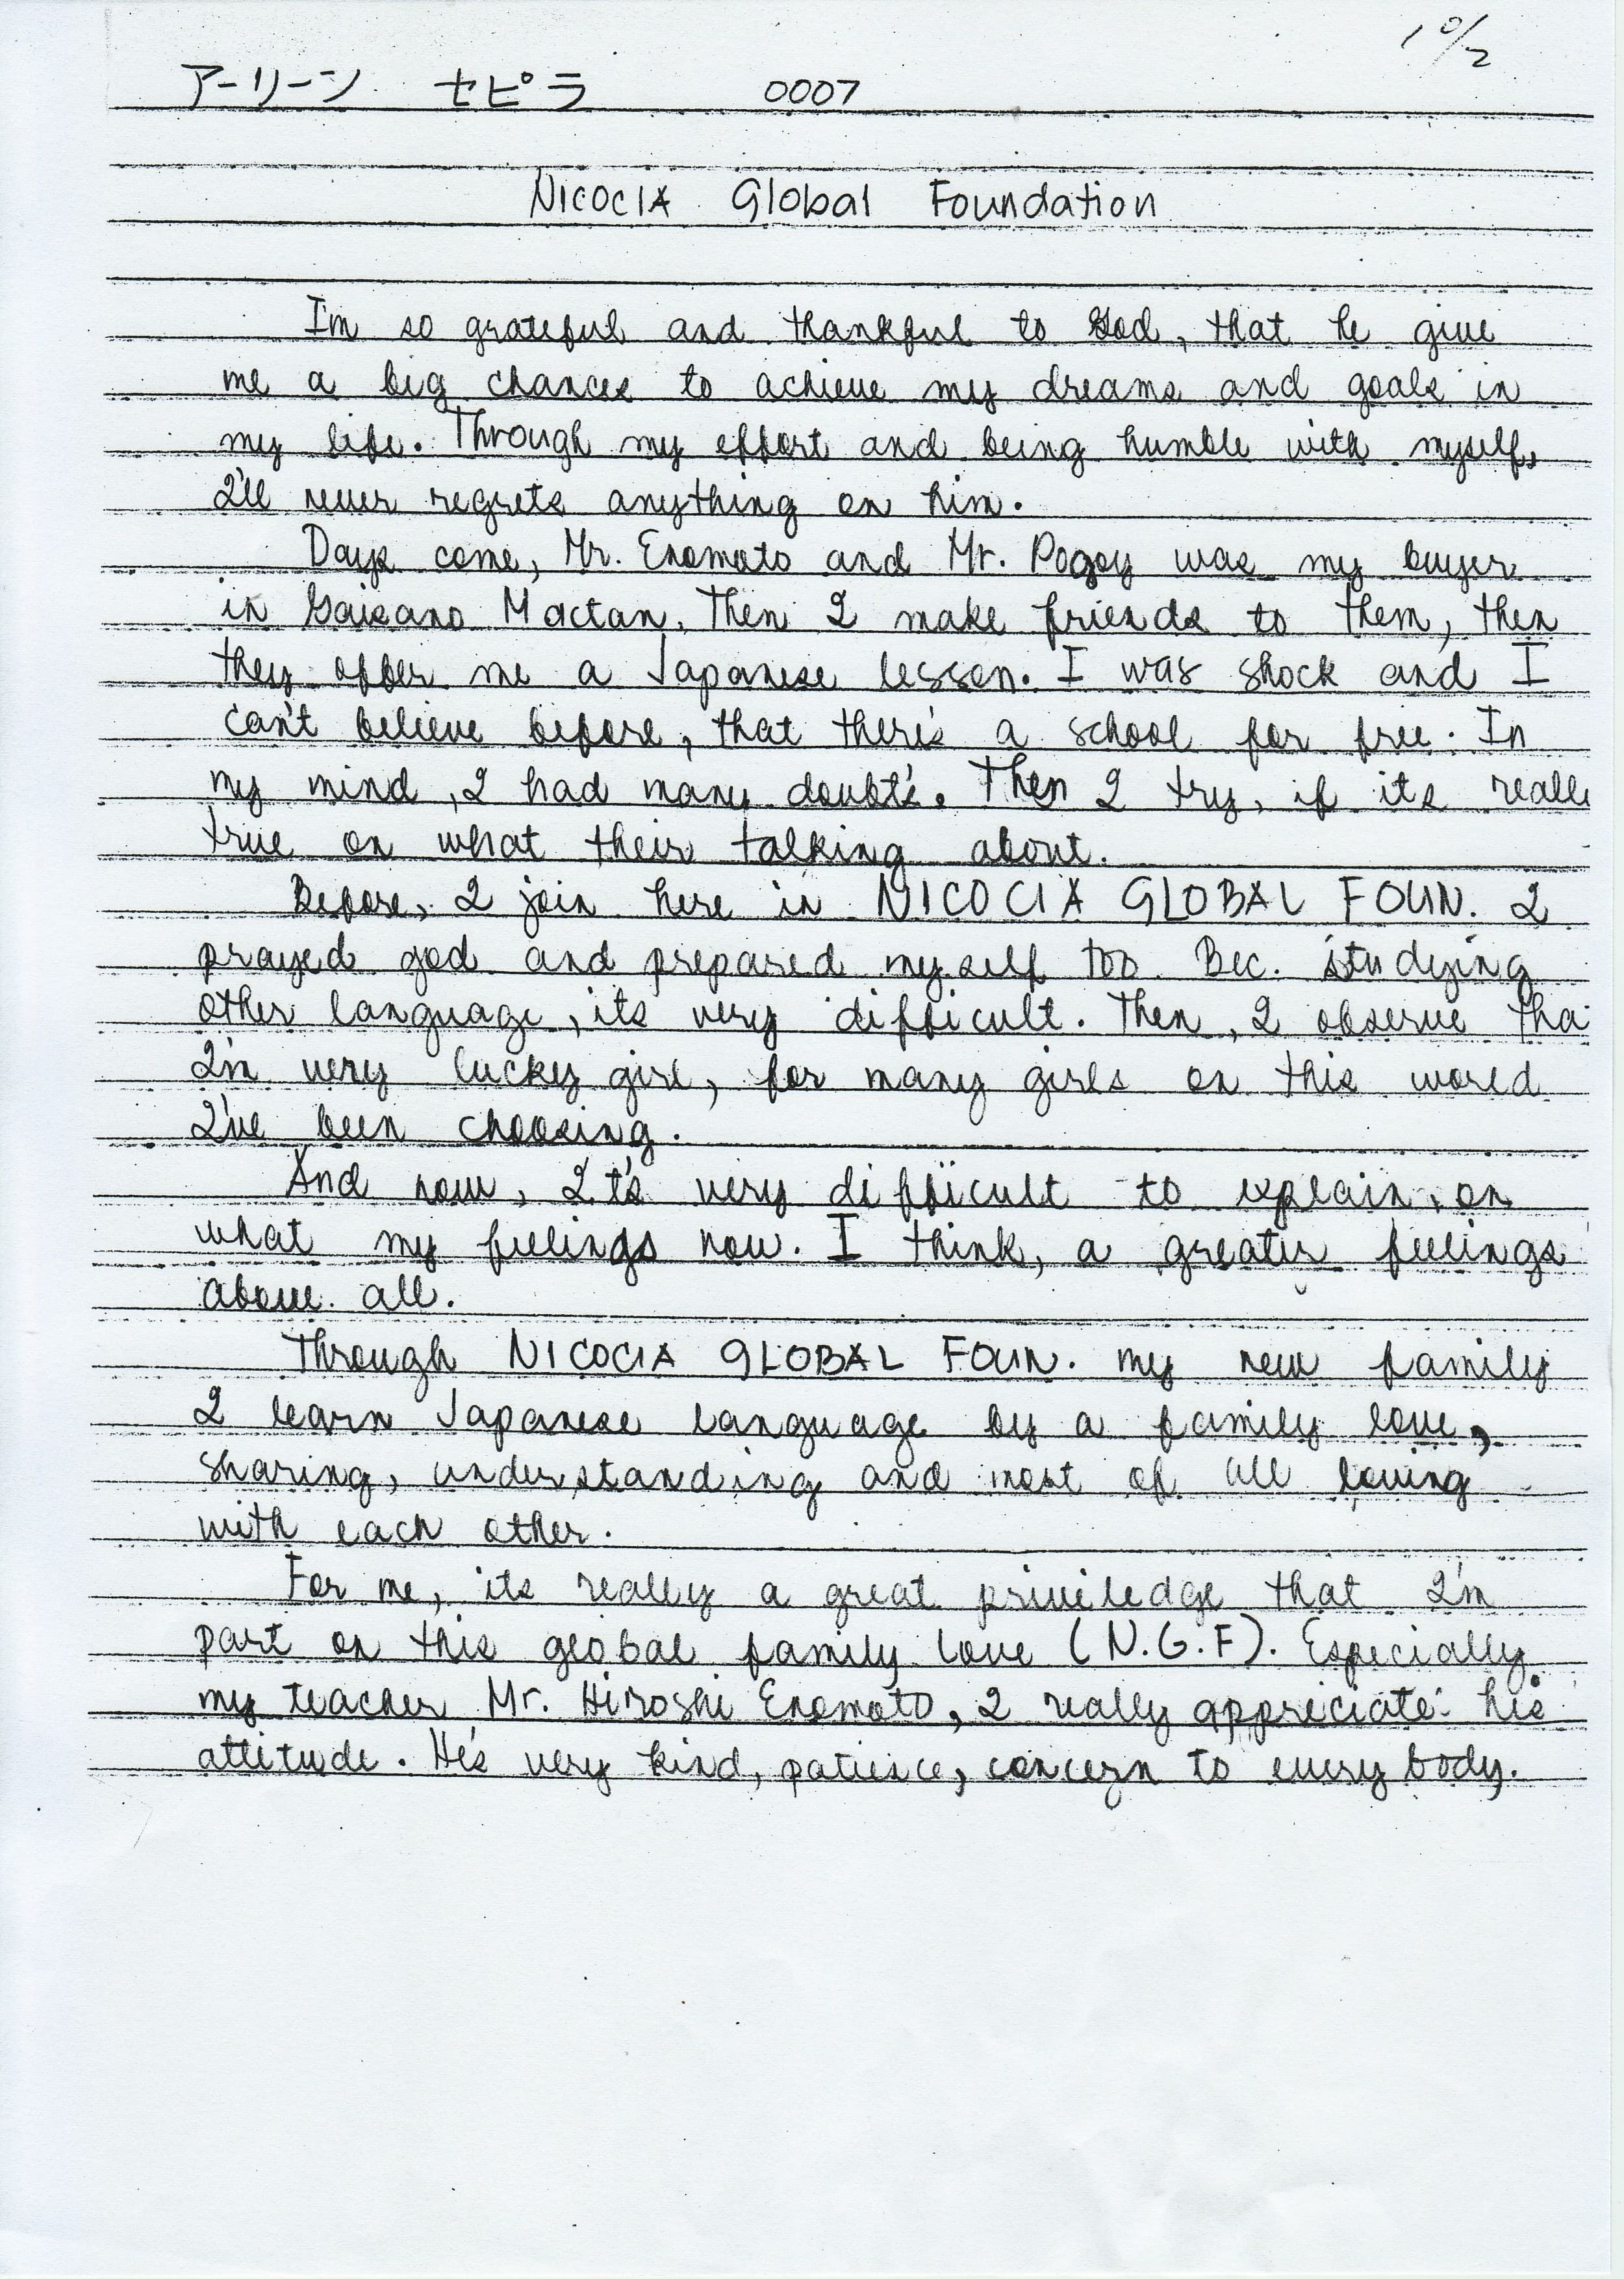 1 0/2
アーリーン セピラ 0007
Nicocia Global Foundation
I'm so grateful and thankful to God, that he give
me a big chances to achieve my dreams and goals in
my life. Through my effort and being humble with myself,
I'll never regrets anything on him.
Days come, Mr. Enomoto and Mr. Pogoy was my buyer
in Gaisano Mactan. Then I make friends to them, then
they offer me a Japanese lesson. I was shock and I
can't believe before, that there's a school for free. In
my mind, I had many doubt's. Then I try, if its reall
true on what their talking about.
Before, I join here in NICOCIA GLOBAL FOUN. I
prayed god and prepared myself too. Bec. studying
other language, its very difficult. Then, I observe tha
I'm very lucky girl, for many girls on this world
I've been choosing.
And now, It's very difficult to explain, on
what my feelings now. I think, a greater feelings
above all.
Through NICOCIA GLOBAL FOUN. my new family
I learn Japanese language by a family love,
sharing, understanding and most of all loving
with each other.
For me, its really a great priviledge that I'm
part on this global family love (N.G.F). Especially
my teacher Mr. Hiroshi Enomoto, I really appreciate his
attitude. He's very kind, patience, concern to every body.